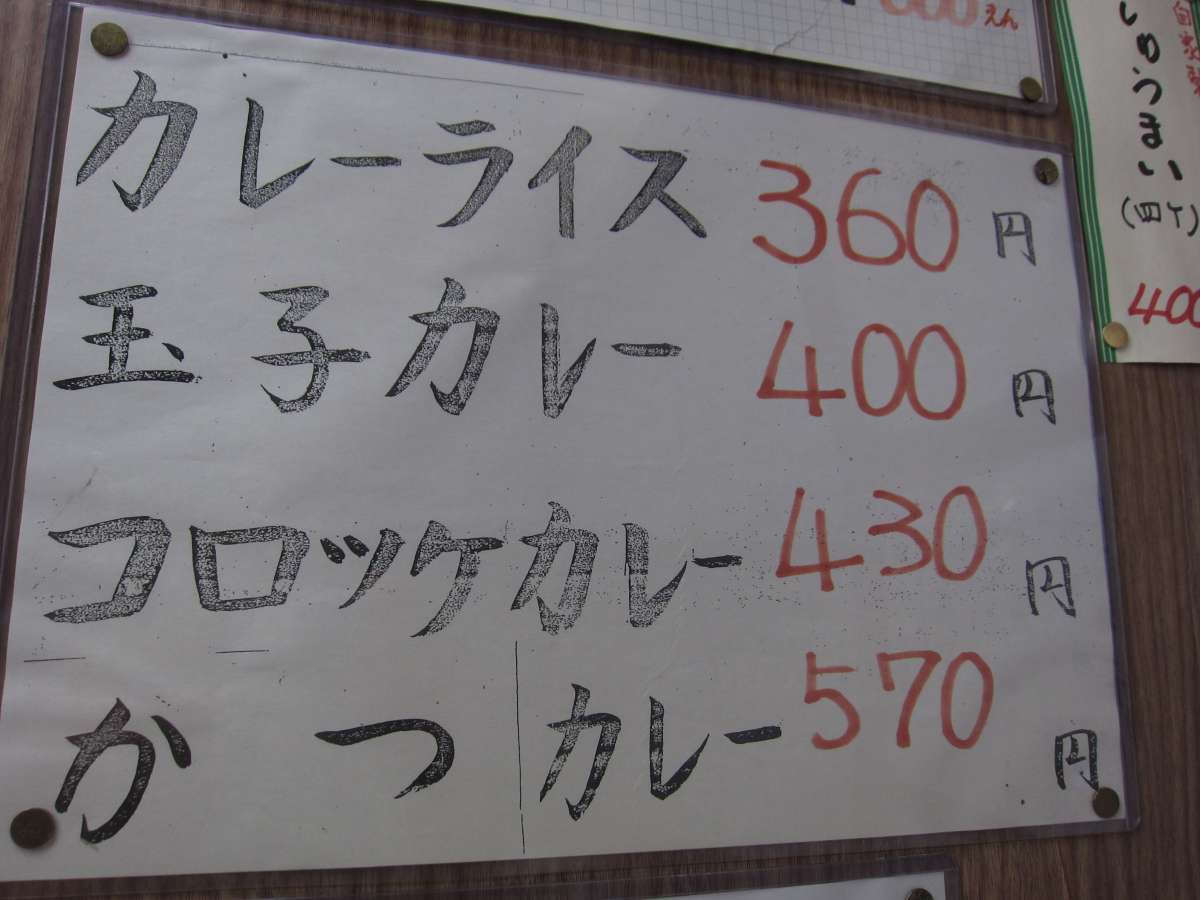 えん
カレーライス 360 円
玉子カレー 400 円
コロッケカレー 430 円
かつカレー 570 円
しゅうまい
(四ケ)
400